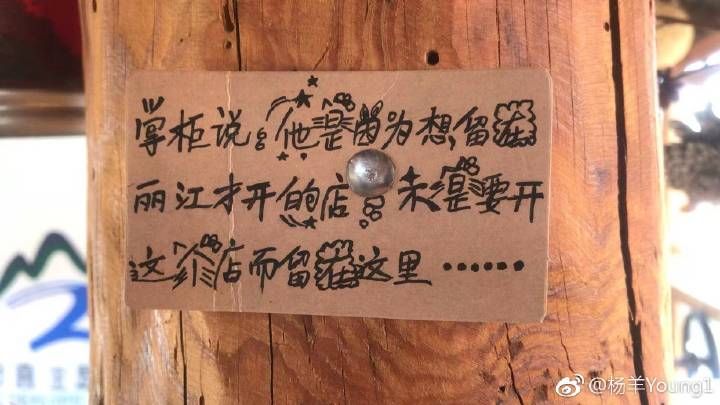 掌柜说：他是因为想留在
丽江才开的店。未是要开
这个店而留在这里……
2
@杨羊Young1